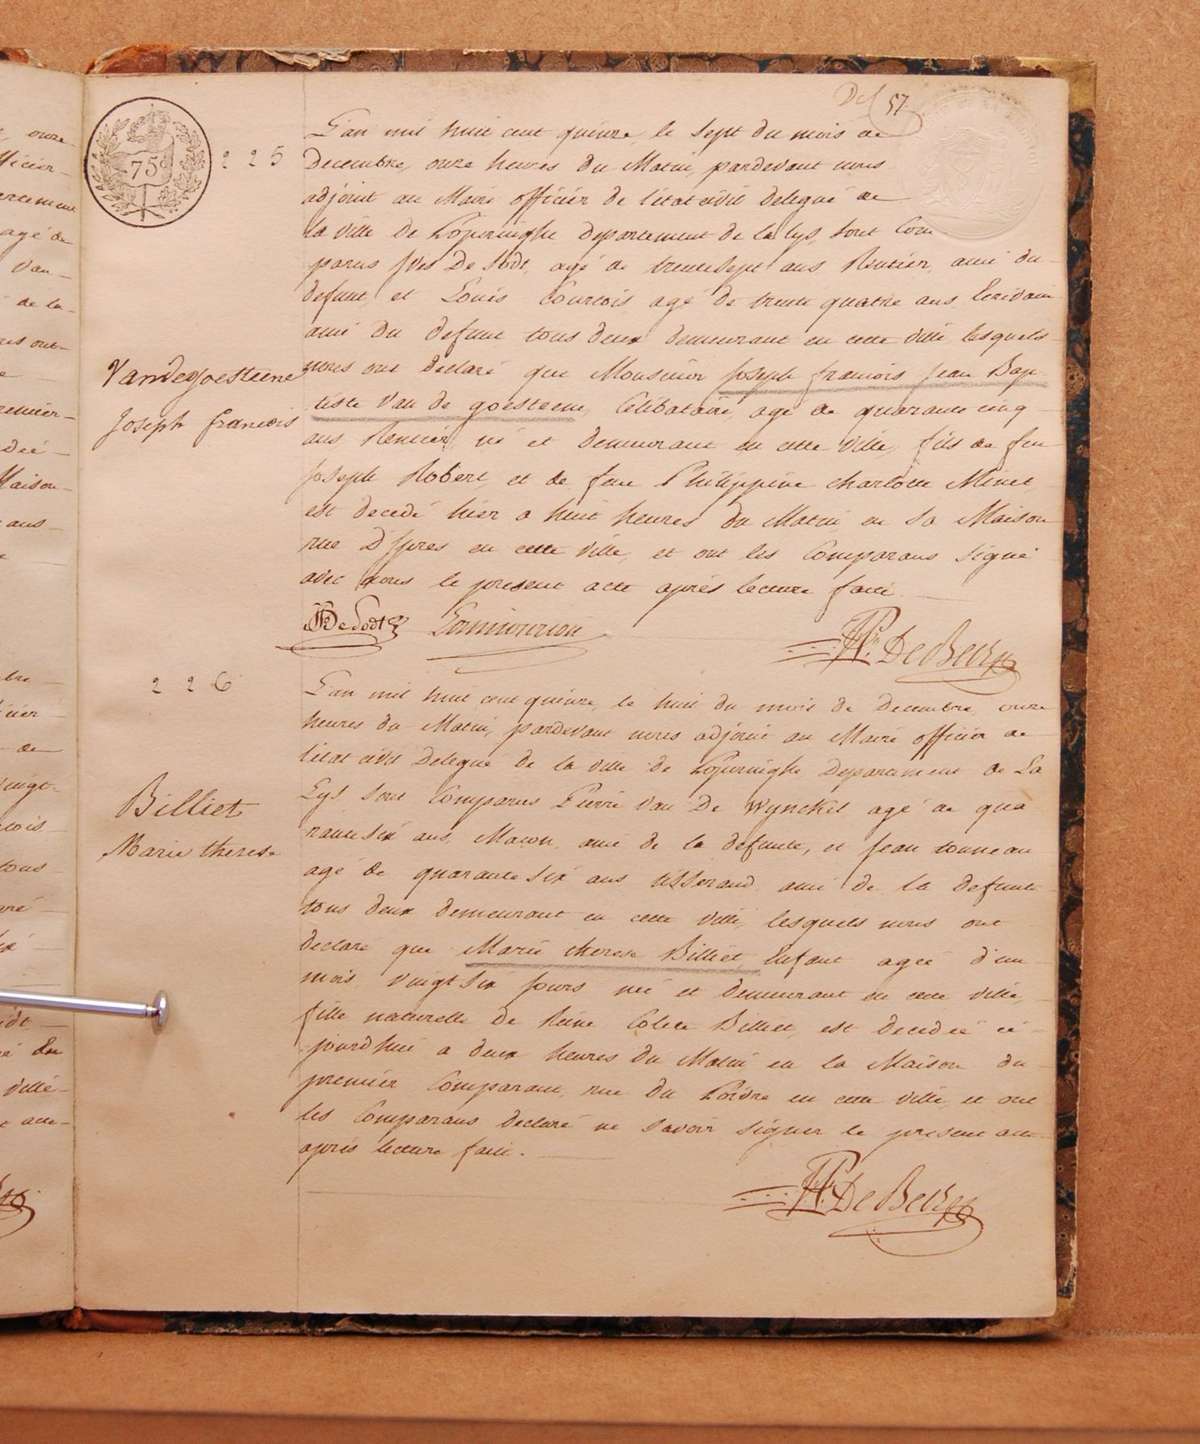 Def 57
75c
225
L'an mil huit cent quinze, le sept du mois de
Decembre, onze heures du Matin, pardevant nous
adjoint au Maire officier de l'état civil delegué de
la ville de Poperinghe departement de la Lys, sont Com
parus Yves De Sodt, agé de trente sept ans Rentier, ami du
defunt, et Louis Courtois agé de trente quatre ans, Ecrivain
ami du defunt tous deux demeurant en cette ville lesquels
nous ont declaré que Monsieur Joseph francois Jean Bap
tiste Van de goesteene, Celibataire, agé de quarante cinq
ans Rentier, né et demeurant en cette ville, fils de feu
Joseph Robert et de feue Philippine charlotte Minet
est decedé hier a huit heures du Matin, en sa Maison
rue D'Ypres en cette ville, et ont les Comparans signé
avec nous le present acte après lecture faite.
Vandegoesteene
Joseph francois
De Sodt
De Beer
226
L'an mil huit cent quinze, le huit du mois de Decembre, onze
heures du Matin, pardevant nous adjoint au Maire officier de
l'état civil Delegué de la ville de Poperinghe Departement de La
Lys sont Comparus Pierre Van De Wynckel agé de qua
rante six ans, Macon, ami de la defunte, et Jean tonneau
agé de quarante six ans tisserand ami de la defunte
tous deux demeurant en cette ville, lesquels nous ont
declaré que Marie therese Billiet, Enfant agée d'un
mois vingt six jours née et demeurant en cette ville,
fille naturelle de Reine Colete Billiet, est decedée ce
jourdhui a deux heures du Matin en la Maison du
premier Comparant, rue du Poivre en cette ville, et ont
les Comparans declaré ne savoir signer le present acte
après lecture faite.
Billiet
Marie therese
De Beer